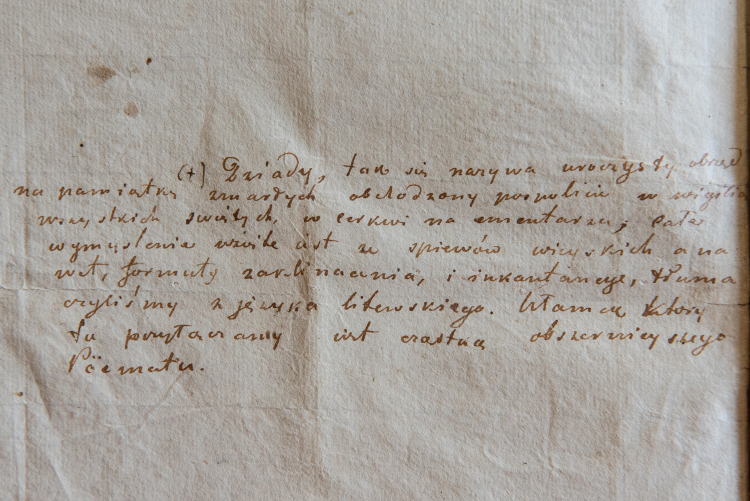 (+) Dziady, tak się nazywa uroczysty obrzęd
na pamiątkę zmarłych obchodzony pospolicie w wigilią
wszystkich swiętych, w cerkwi na cmentarzu; całe
wymyslenie wzięte jest ze spiewów wieyskich a na
wet, formuły zaklinaania, i inkantancye, tłuma
czyliśmy z języka litewskiego. Ułamek który
tu przytaczamy jest częstną obszernieyszego
Pöematu.